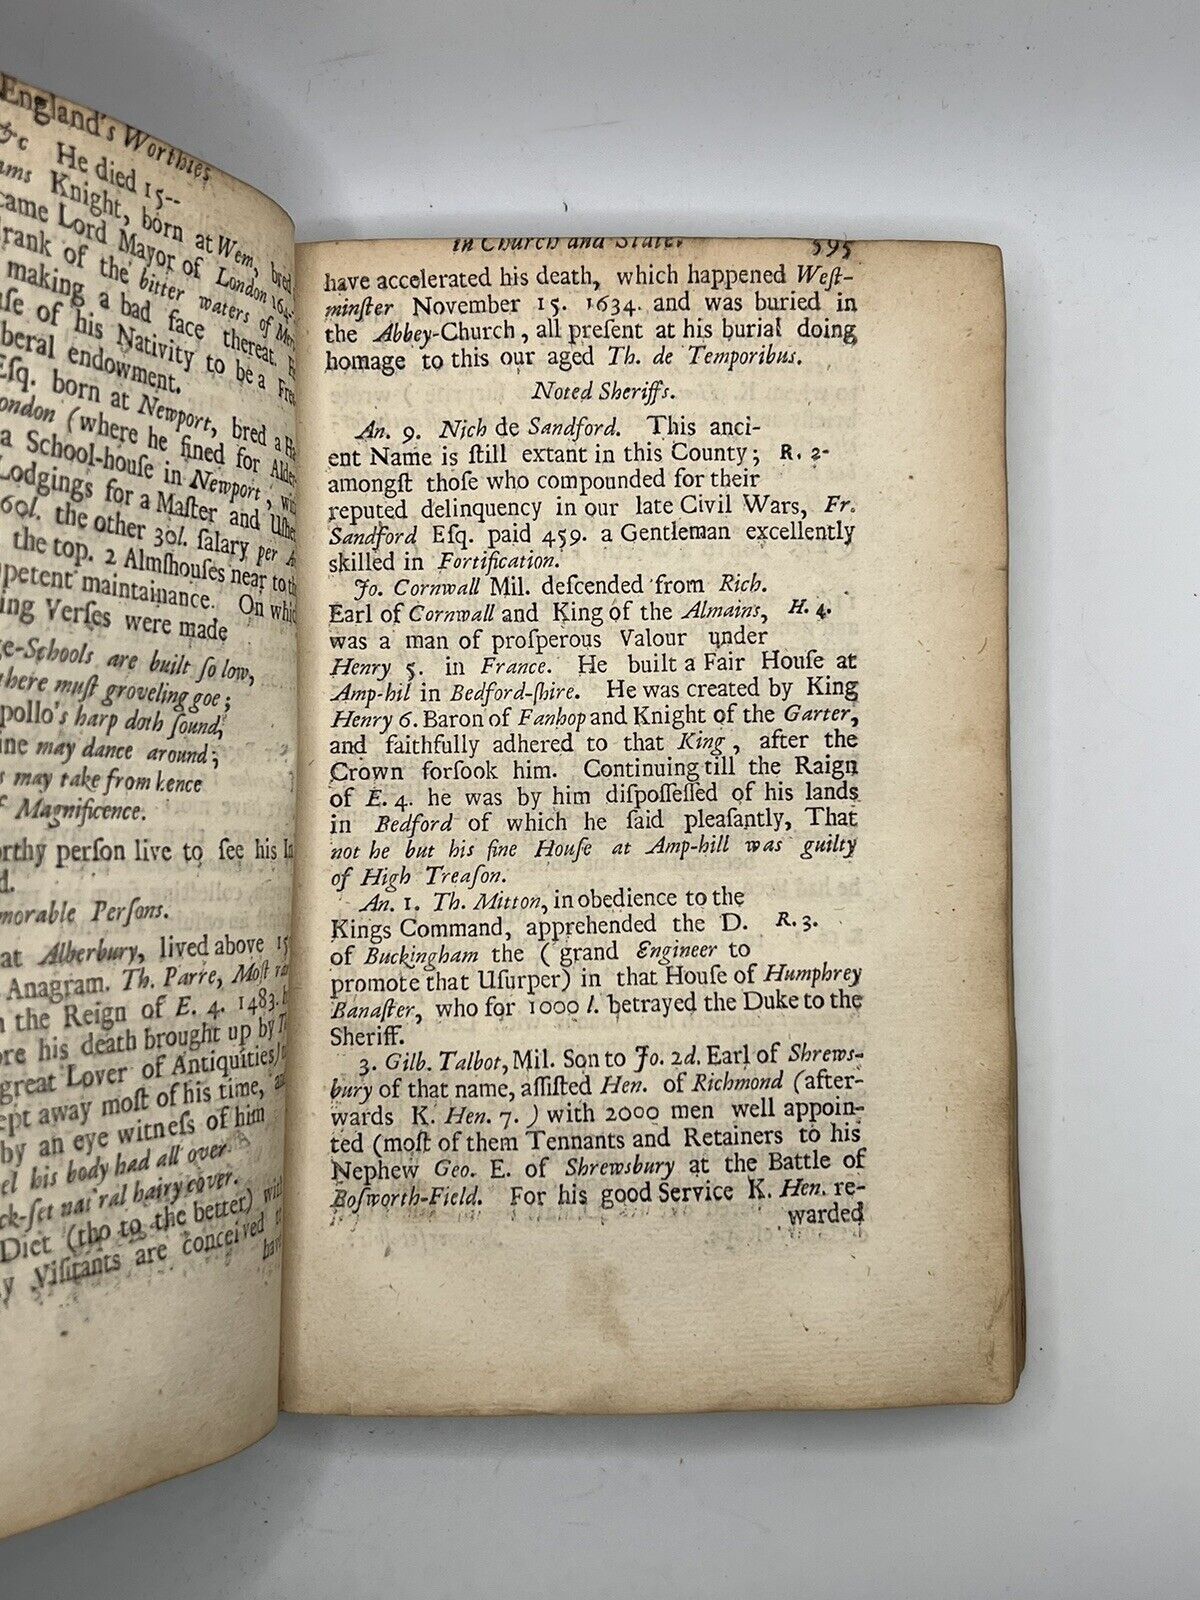 England's Worthies
&c He died 15--
Knight, born at Wem, bred
came Lord Mayor of London 164
drank of the bitter waters of Mer
making a bad face thereat.
of his Nativity to be a Free
liberal endowment.
Eſq. born at Newport, bred a
London (where he fined for Alder
a School-houſe in Newport, with
Lodgings for a Maſter and Uſher
60l. the other 30l. ſalary per A
the top. 2 Almſhouſes near to the
petent maintainance. On which
ing Verſes were made
ge-Schools are built ſo low,
where muſt groveling goe;
pollo's harp doth ſound,
ine may dance around;
s may take from hence
f Magnificence.
orthy perſon live to ſee his In
d.
morable Perſons.
at Alberbury, lived above 15
Anagram. Th. Parre, Moſt ra
the Reign of E. 4. 1483.
ore his death brought up by
great Lover of Antiquities
ept away moſt of his time,
by an eye witneſs of him
el his body had all over.
ck-ſet nat'ral hairy cover.
Diet (tho to the better) with
Viſitants are conceived to
have
in Church and State. 595
have accelerated his death, which happened Weſt-
minſter November 15. 1634. and was buried in
the Abbey-Church, all preſent at his burial doing
homage to this our aged Th. de Temporibus.
Noted Sheriffs.
An. 9. Nich de Sandford. This anci-
ent Name is ſtill extant in this County; R. 2-
amongſt thoſe who compounded for their
reputed delinquency in our late Civil Wars, Fr.
Sandford Eſq. paid 459. a Gentleman excellently
skilled in Fortification.
Jo. Cornwall Mil. deſcended from Rich.
Earl of Cornwall and King of the Almains, H. 4.
was a man of proſperous Valour under
Henry 5. in France. He built a Fair Houſe at
Amp-hil in Bedford-ſhire. He was created by King
Henry 6. Baron of Fanhop and Knight of the Garter,
and faithfully adhered to that King, after the
Crown forſook him. Continuing till the Raign
of E. 4. he was by him diſpoſſeſſed of his lands
in Bedford of which he ſaid pleaſantly, That
not he but his fine Houſe at Amp-hill was guilty
of High Treaſon.
An. 1. Th. Mitton, in obedience to the
Kings Command, apprehended the D. R. 3.
of Buckingham the (grand Engineer to
promote that Uſurper) in that Houſe of Humphrey
Banaſter, who for 1000 l. betrayed the Duke to the
Sheriff.
3. Gilb. Talbot, Mil. Son to Jo. 2d. Earl of Shrewſ-
bury of that name, aſſiſted Hen. of Richmond (after-
wards K. Hen. 7.) with 2000 men well appoin-
ted (moſt of them Tennants and Retainers to his
Nephew Geo. E. of Shrewsbury at the Battle of
Boſworth-Field. For his good Service K. Hen. re-
warded